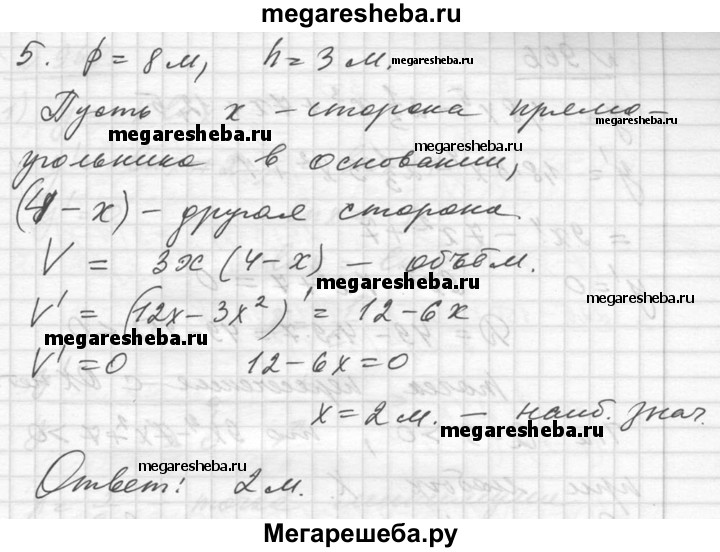 megaresheba.ru
5. p = 8 м, h = 3 м.
Пусть x – сторона прямо-
megaresheba.ru
megaresheba.ru
угольника в основании,
(4 – x) – другая сторона
V = 3x (4 – x) – объём.
megaresheba.ru
megaresheba.ru
V' = (12x – 3x²)' = 12 – 6x
megaresheba.ru
V' = 0 12 – 6x = 0
x = 2 м. – наиб. знач.
megaresheba.ru
megaresheba.ru
Ответ: 2 м.
Мегарешеба.ру